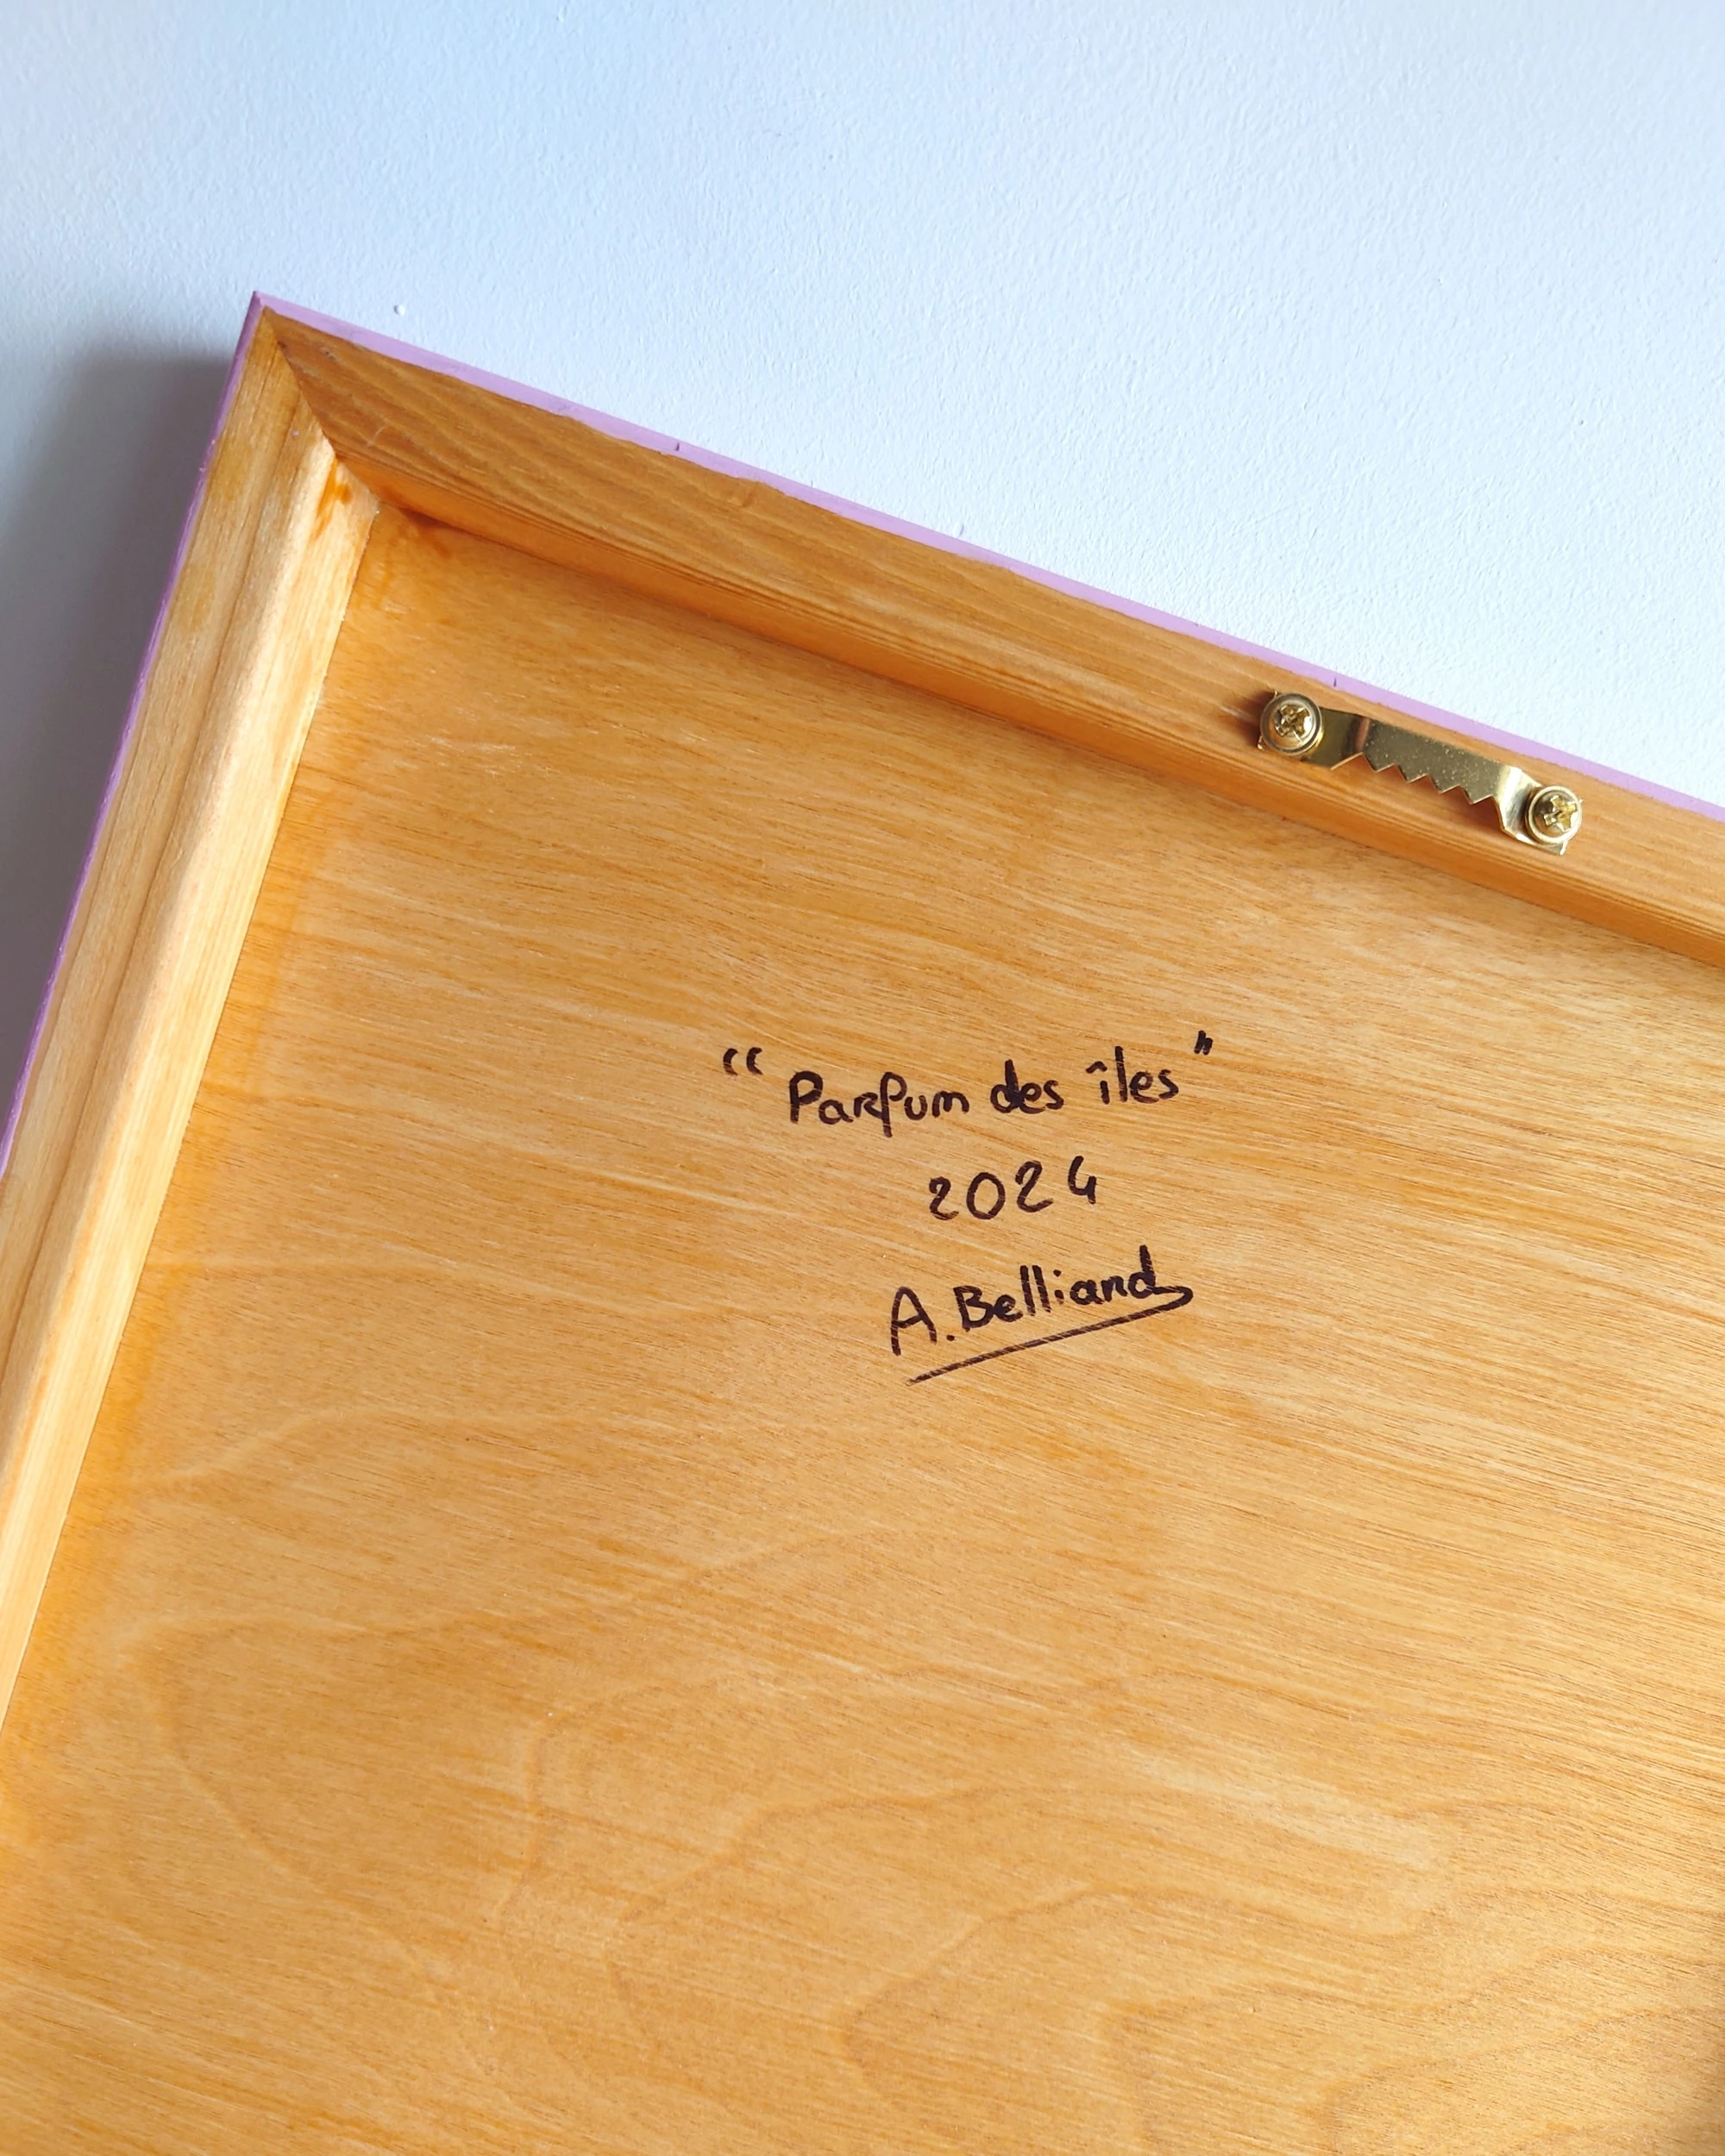 "Parfum des îles"
2024
A. Belliard